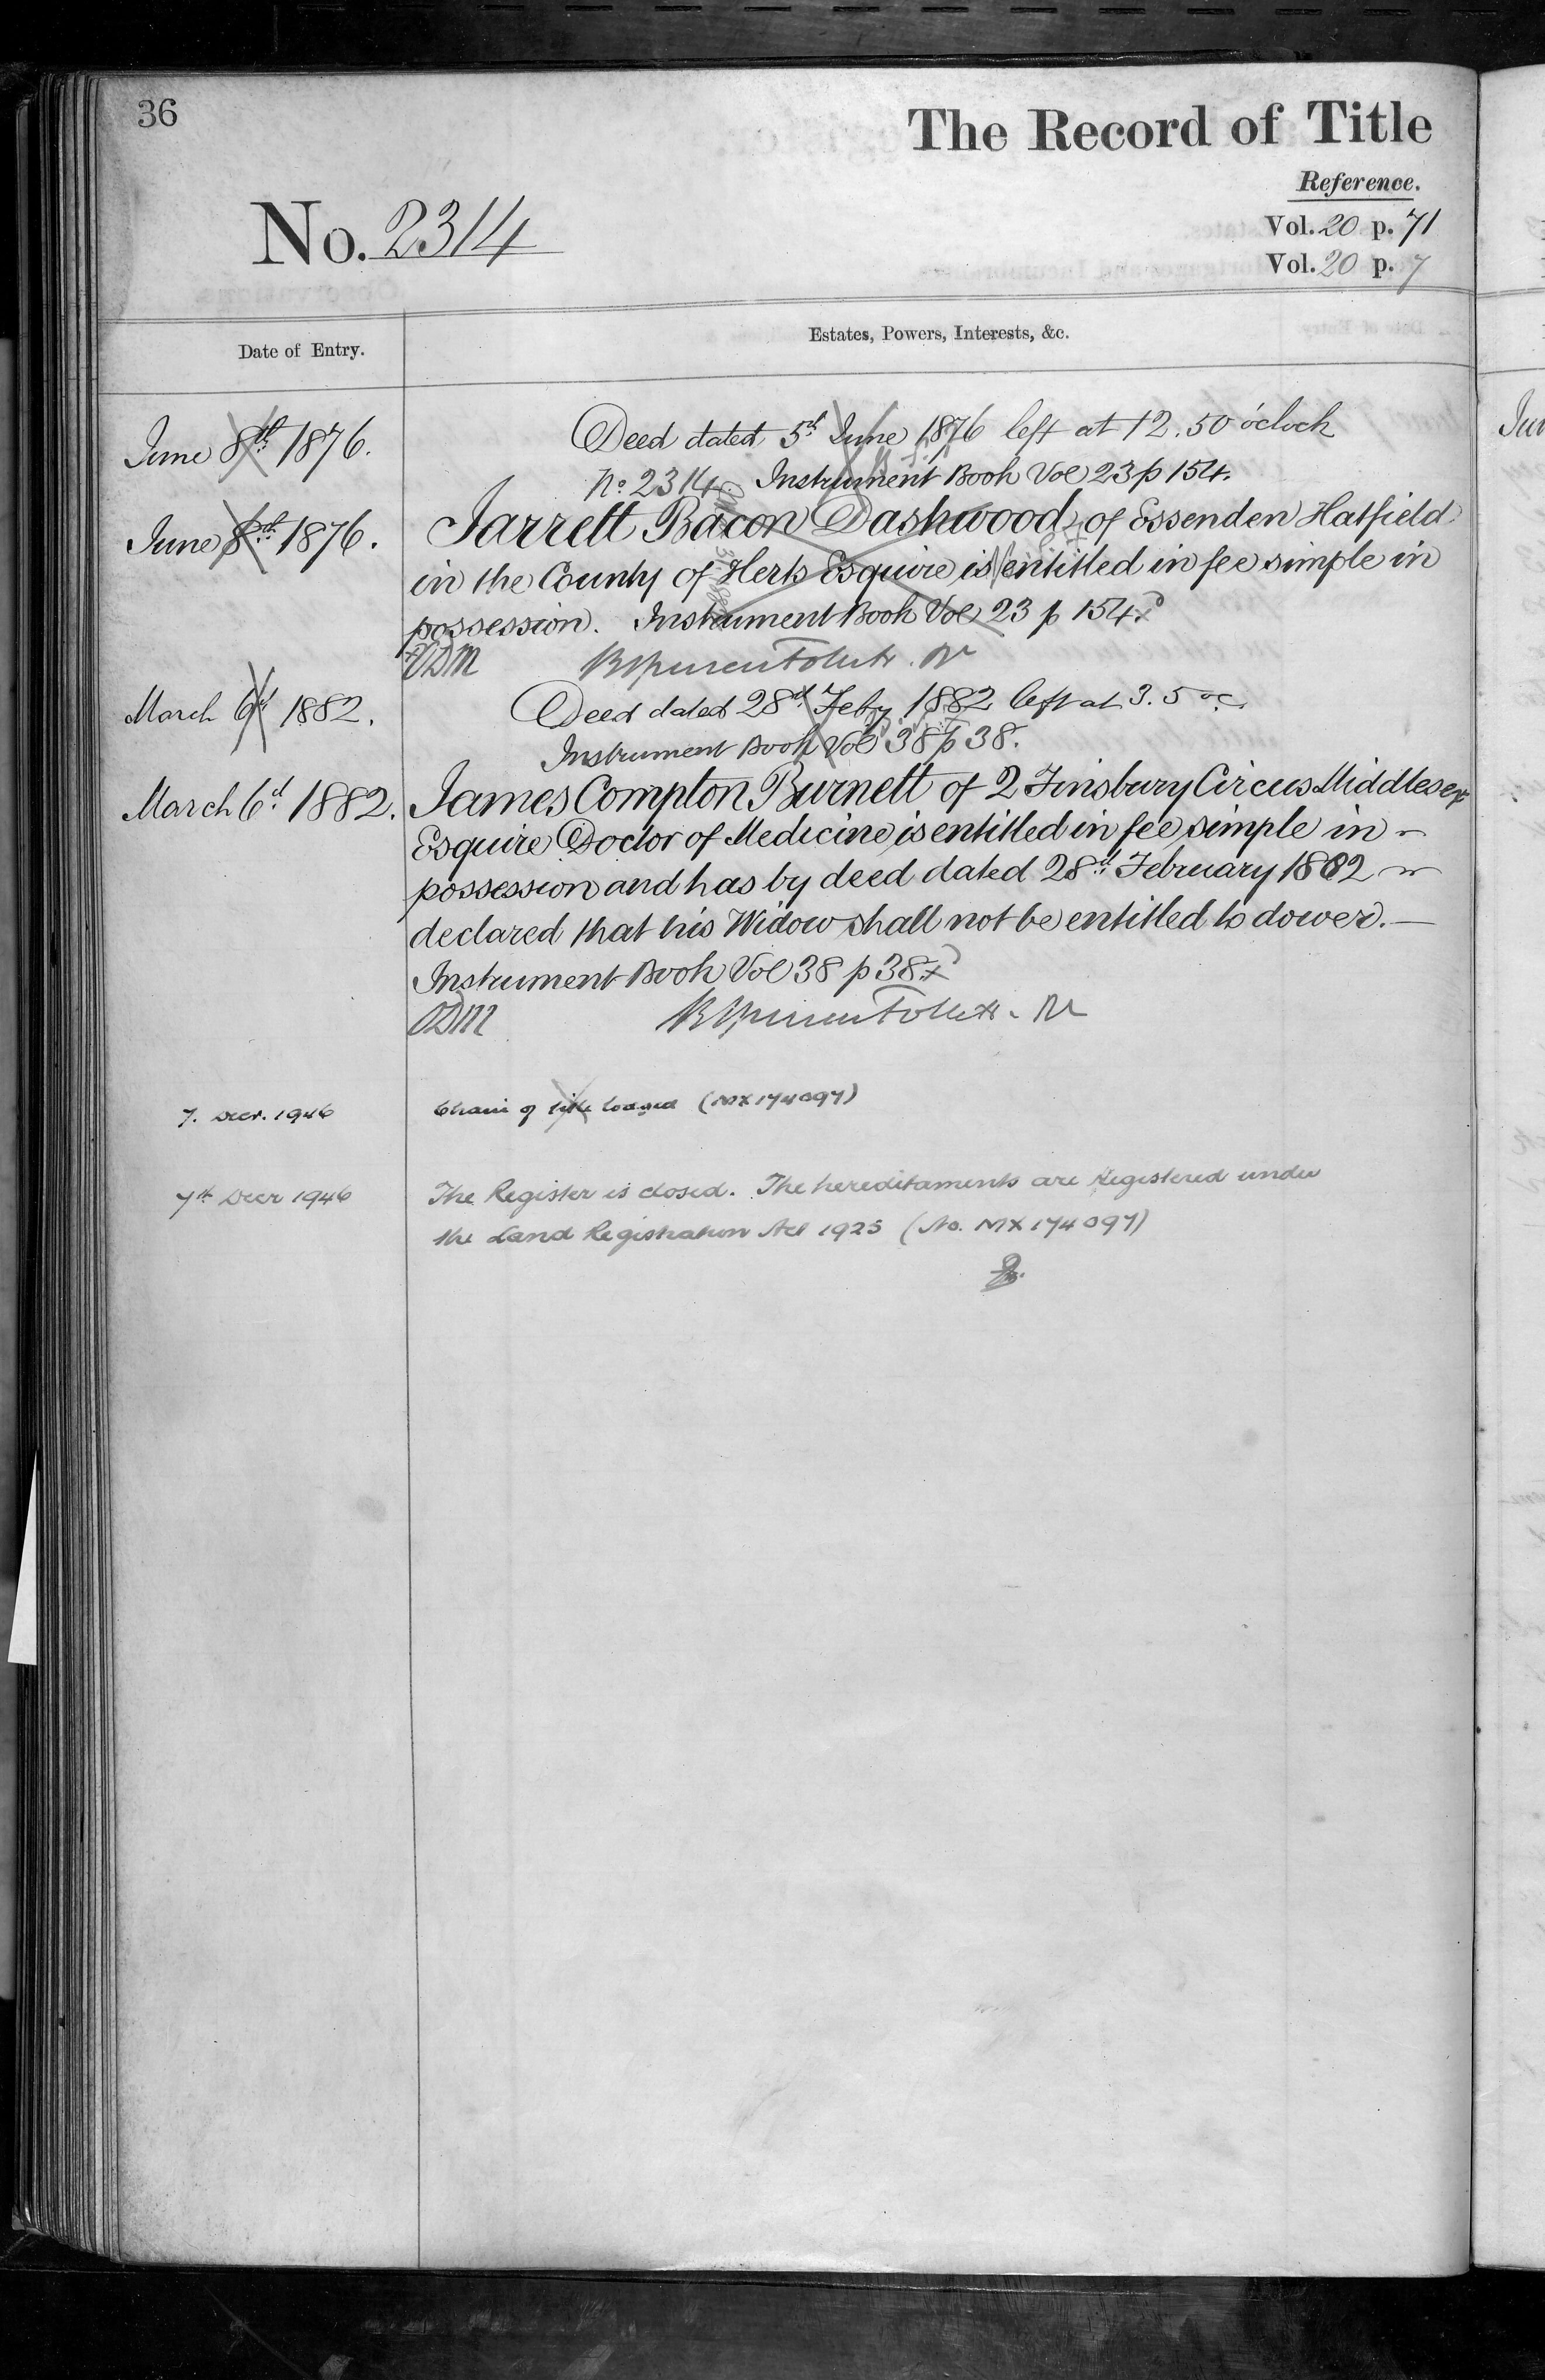 36
The Record of Title
Reference.
No. 2314
Vol. 20 p. 71
Vol. 20 p. 7
Date of Entry.
Estates, Powers, Interests, &c.
June 8th 1876.
Deed dated 5th June 1876 left at 12.50 o'clock
No. 2314. Instrument Book Vol 23 p 154.
June 8th 1876.
Jarrett Bacon Dashwood of Essenden Hatfield
in the County of Herts Esquire is entitled in fee simple in
possession. Instrument Book Vol 23 p 154.
March 6th 1882.
Deed dated 28th Feby 1882 left at 3.5 oc
Instrument Book Vol 38 p 38.
March 6th 1882.
James Compton Burnett of 2 Finsbury Circus Middlesex
Esquire Doctor of Medicine is entitled in fee simple in
possession and has by deed dated 28th February 1882
declared that his Widow shall not be entitled to dower.
Instrument Book Vol 38 p 38.
7. Decr. 1946
Chain of title lodged (MX174097)
7th Decr 1946
The Register is closed. The hereditaments are Registered under
the Land Registration Act 1925 (No. MX174097)